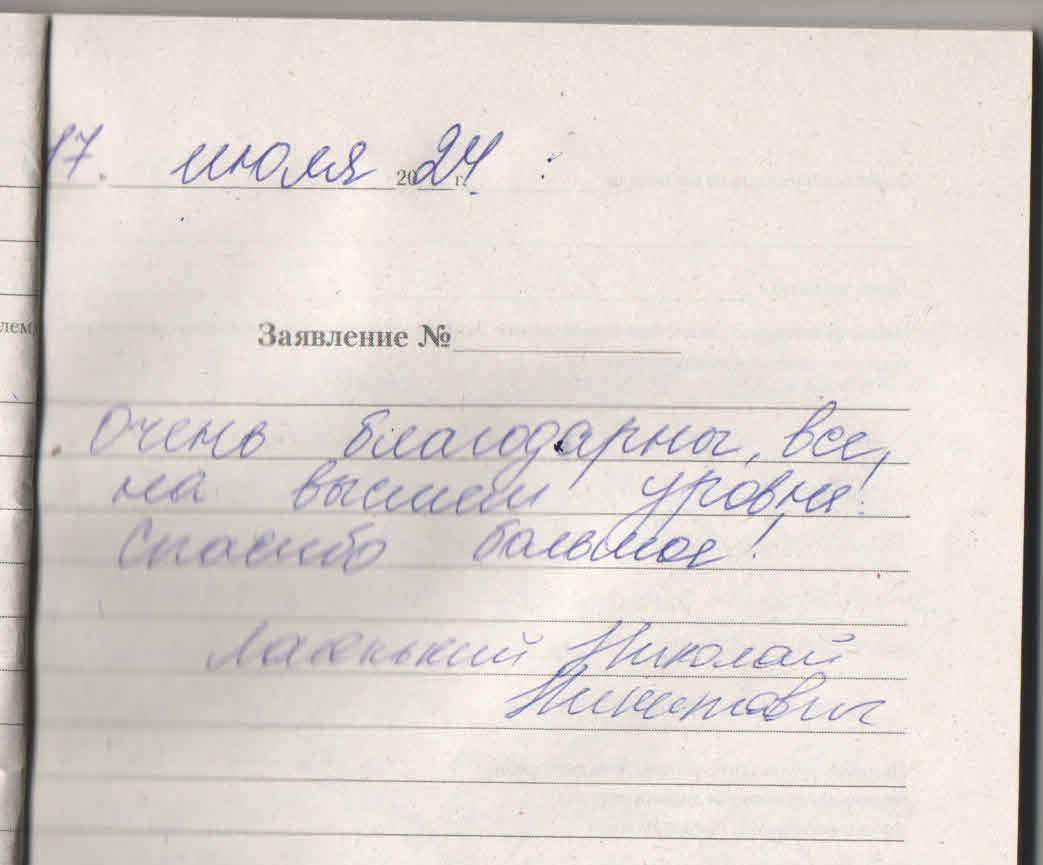 17. июля 2024 г.
Заявление №
Очень благодарны, все,
на высшем уровне!
Спасибо большое!
Николай